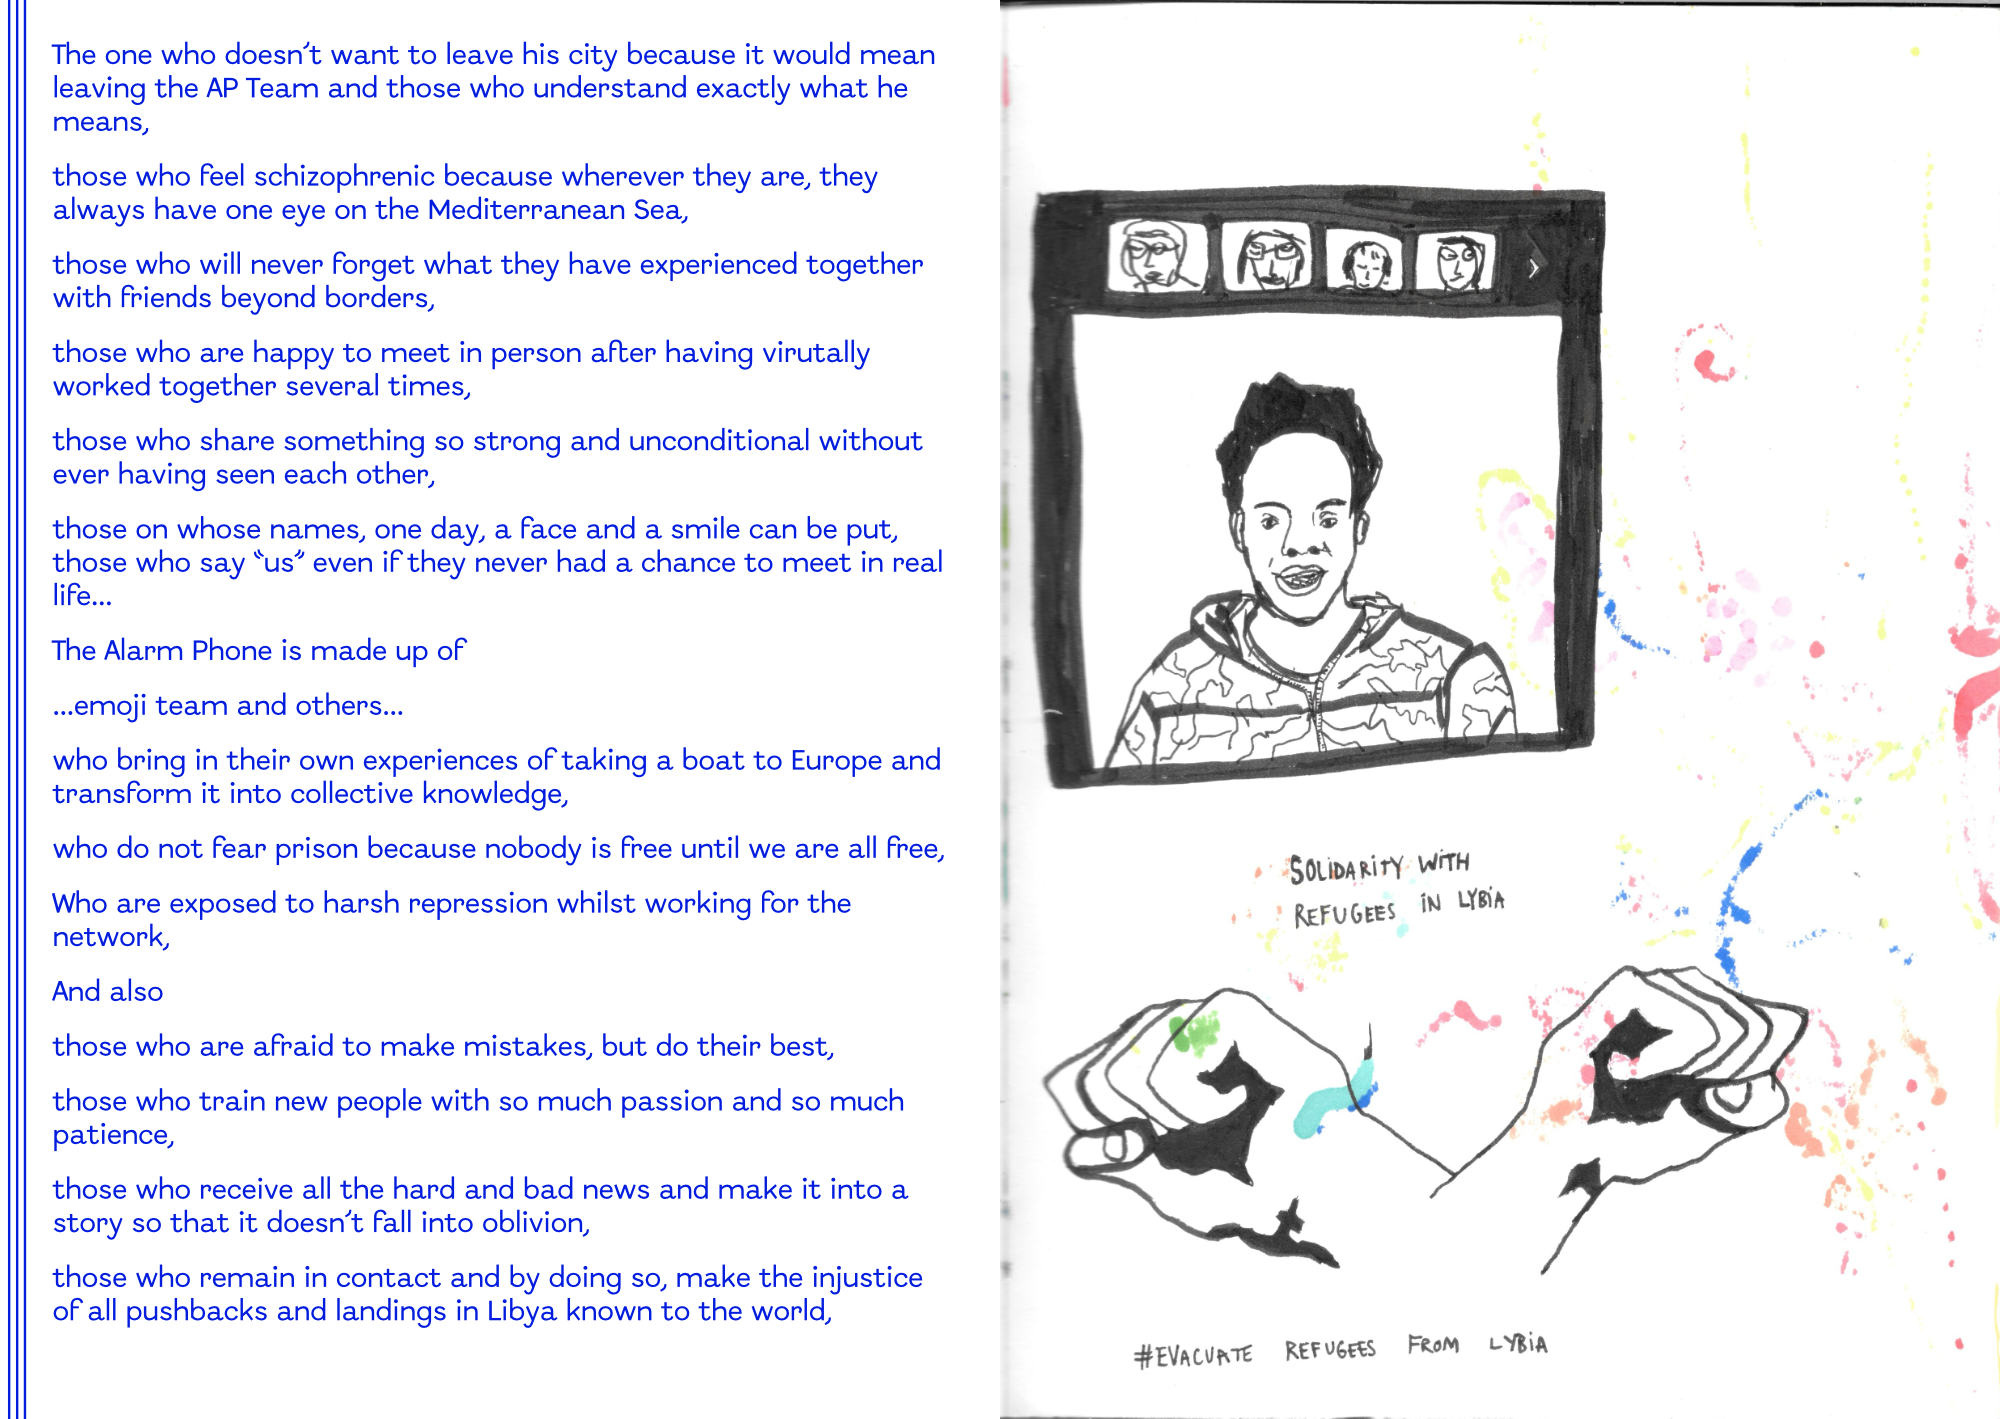 The one who doesn't want to leave his city because it would mean
leaving the AP Team and those who understand exactly what he
means,
those who feel schizophrenic because wherever they are, they
always have one eye on the Mediterranean Sea,
those who will never forget what they have experienced together
with friends beyond borders,
those who are happy to meet in person after having virutally
worked together several times,
those who share something so strong and unconditional without
ever having seen each other,
those on whose names, one day, a face and a smile can be put,
those who say “us” even if they never had a chance to meet in real
life...
The Alarm Phone is made up of
...emoji team and others...
who bring in their own experiences of taking a boat to Europe and
transform it into collective knowledge,
who do not fear prison because nobody is free until we are all free,
Who are exposed to harsh repression whilst working for the
network,
And also
those who are afraid to make mistakes, but do their best,
those who train new people with so much passion and so much
patience,
those who receive all the hard and bad news and make it into a
story so that it doesn't fall into oblivion,
those who remain in contact and by doing so, make the injustice
of all pushbacks and landings in Libya known to the world,
SOLiDARiTY WiTH
REFUGEES iN LYBiA
#EVACUATE REFUGEES FROM LYBiA